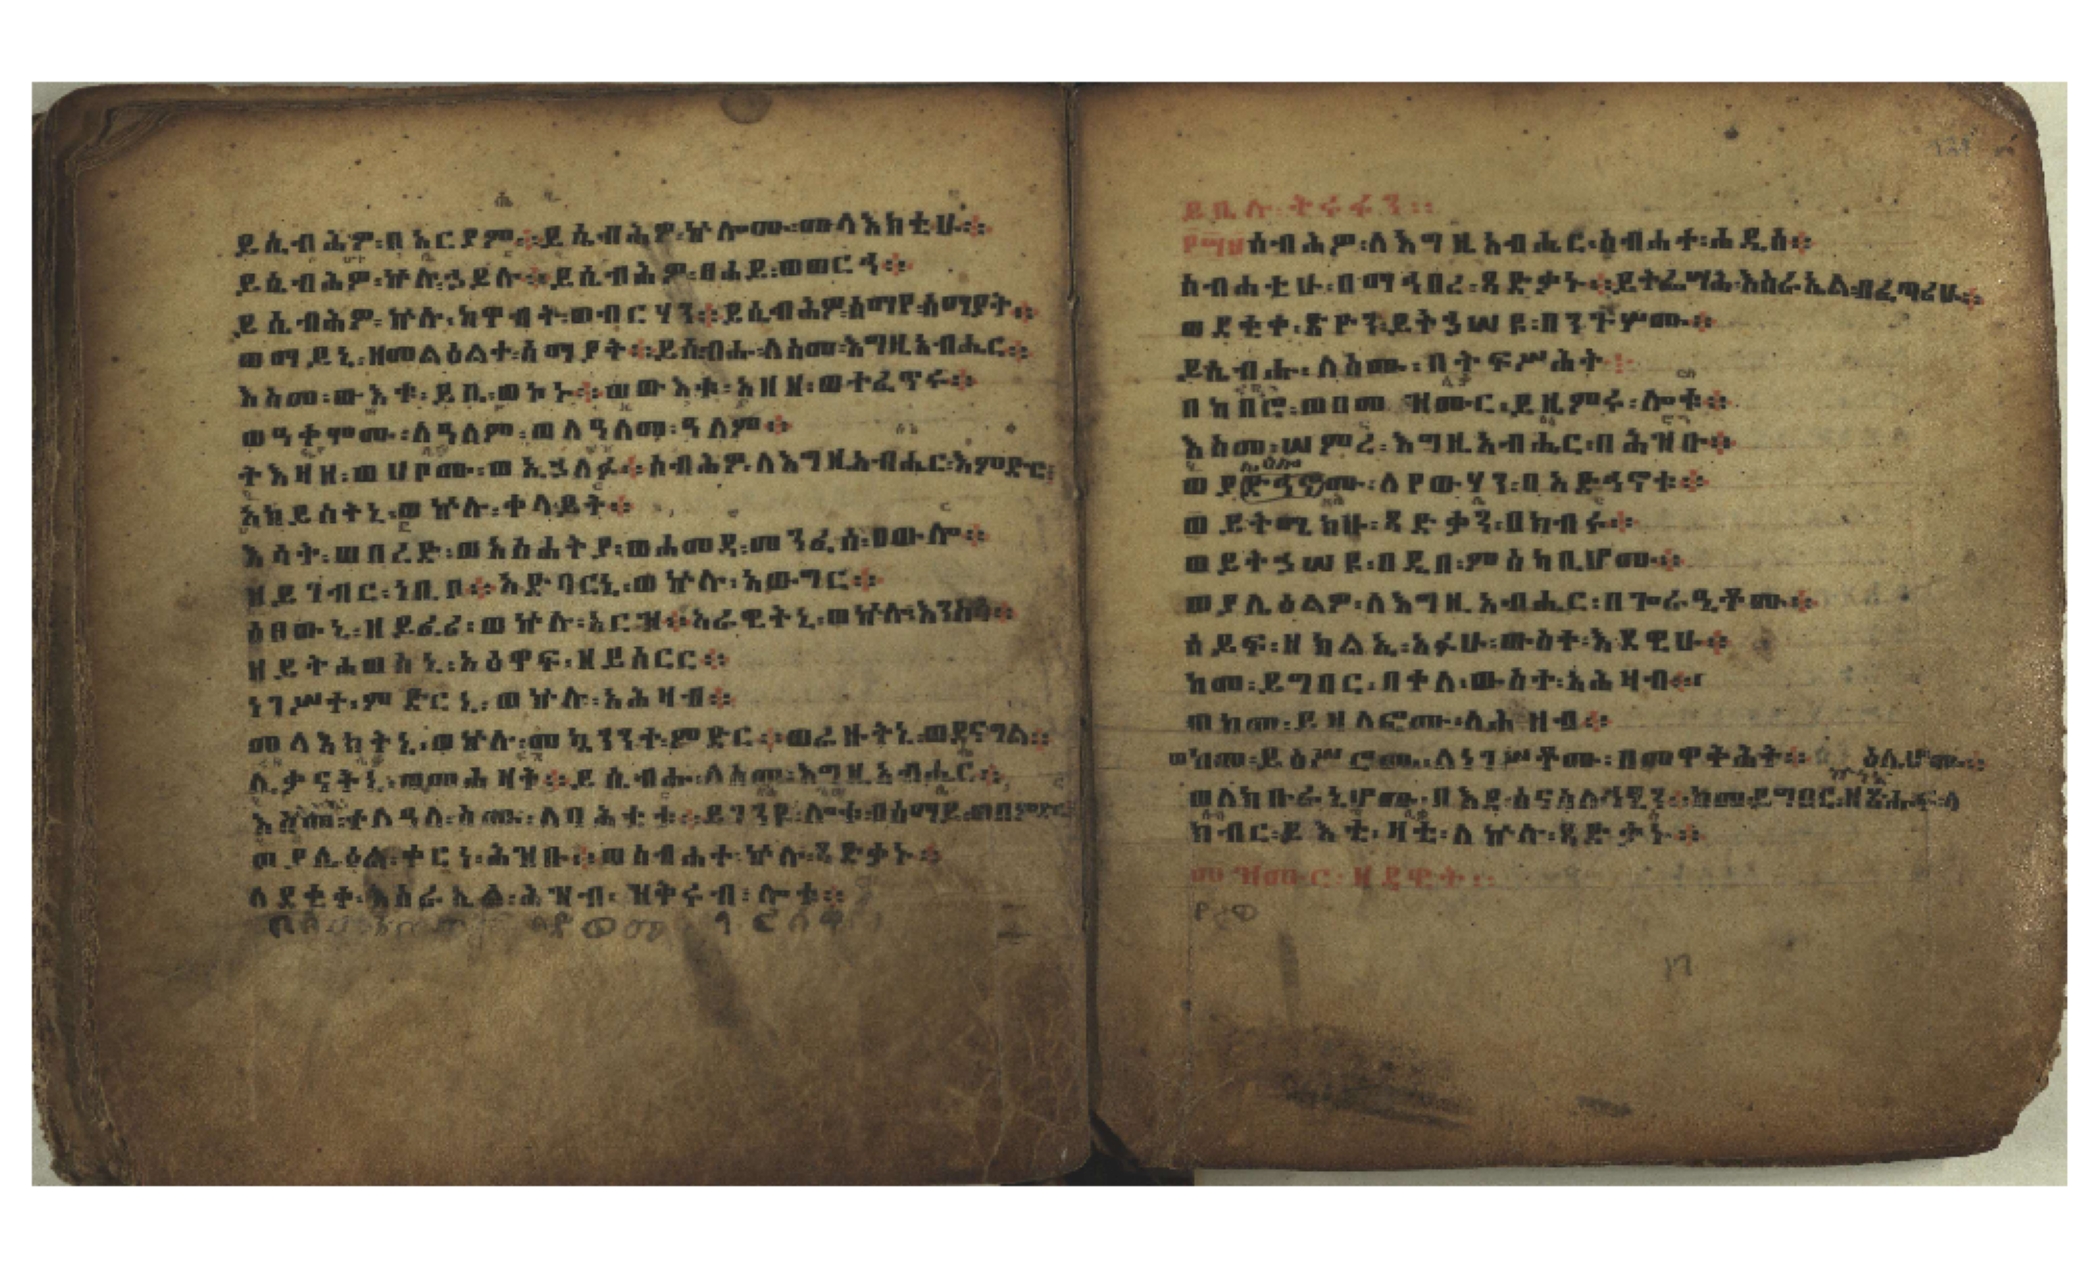 ይሴብሕዎ፡በአርያም፨ይሴብሕዎ፡ኵሎሙ፡መላእክቲሁ፨
ይሴብሕዎ፡ኵሉ፡ኃይሉ፨ይሴብሕዎ፡ፀሐይ፡ወወርኅ፨
ይሴብሕዎ፡ኵሉ፡ከዋብት፡ወብርሃን፨ይሴብሕዎ፡ሰማየ፡ሰማያት፨
ወማይኒ፡ዘመልዕልተ፡ሰማያት፨ይሴብሑ፡ለስሙ፡እግዚአብሔር፨
እስመ፡ውእቱ፡ይቤ፡ወኮኑ፨ወውእቱ፡አዘዘ፡ወተፈጥሩ፨
ወዓቀሞሙ፡ለዓለም፡ወለዓለመ፡ዓለም፨
ትእዛዘ፡ወሀቦሙ፡ወኢኃለፉ፨ሰብሕዎ፡ለእግዚአብሔር፡እምድር፡
አክይስትኒ፡ወኵሉ፡ቀላይት፨
እሳት፡ወበረድ፡ወአስሐትያ፡ወሐመዳ፡መንፈሰ፡ዐውሎ፨
ዘይገብር፡ነቢቦ፨አድባርኒ፡ወኵሉ፡አውግር፨
ዕፀውኒ፡ዘይፈሪ፡ወኵሉ፡አርዝ፨አራዊትኒ፡ወኵሉ፡እንስሳ፨
ዘይትሐወስኒ፡አዕዋፍ፡ዘይሰርር፨
ነገሥተ፡ምድርኒ፡ወኵሉ፡አሕዛብ፨
መላእክትኒ፡ወኵሉ፡መኳንንተ፡ምድር፨ወራዙትኒ፡ወደናግል፨
ሊቃናትኒ፡ወመሕዛት፨ይሴብሑ፡ለስሙ፡እግዚአብሔር፨
እስመ፡ተለዓለ፡ስሙ፡ለባሕቲቱ፨ይገንዩ፡ሎቱ፡በሰማይ፡ወበምድር
ወያሌዕል፡ቀርነ፡ሕዝቡ፨ወስብሐተ፡ኵሉ፡ጻድቃኑ፨
ለደቂቀ፡እስራኤል፡ሕዝብ፡ዝቅሩብ፡ሎቱ፨
ይቤሉ፡ትሩፋን፨
ሰብሕዎ፡ለእግዚአብሔር፡ስብሐተ፡ሐዲስ፨
ስብሐቲሁ፡በማኅበረ፡ጻድቃኑ፨ይትፌሣሕ፡እስራኤል፡በፈጣሪሁ፨
ወደቂቀ፡ጽዮን፡ይትኃሠዩ፡በንጉሦሙ፨
ይሴብሑ፡ለስሙ፡በትፍሥሕት፨
በከበሮ፡ወበመዝሙር፡ይዜምሩ፡ሎቱ፨
እስመ፡ሠምረ፡እግዚአብሔር፡በሕዝቡ፨
ወያድኅኖሙ፡ለየውሃን፡በአድኅኖቱ፨
ወይትሜክሁ፡ጻድቃን፡በክብሩ፨
ወይትኃሠዩ፡በዲበ፡ምስካቢሆሙ፨
ወያሌዕልዎ፡ለእግዚአብሔር፡በጐራዒቶሙ፨
ሰይፍ፡ዘክልኤ፡አፉሁ፡ውስተ፡እደዊሁ፨
ከመ፡ይግበር፡በቀለ፡ውስተ፡አሕዛብ፨
ወከመ፡ይዛለፎሙ፡ለሕዘብ፨
ወከመ፡ይዕሥሮሙ፡ለነገሥቶሙ፡በመዋትሕት፨
ወለክቡራኒሆሙ፡በእደ፡ሰናስለ፡ኀፂን፨ከመ፡ይግበር፡
ክብር፡ይእቲ፡ዛቲ፡ለኵሉ፡ጻድቃኑ፨
መዝሙር፡ዘዳዊት፨